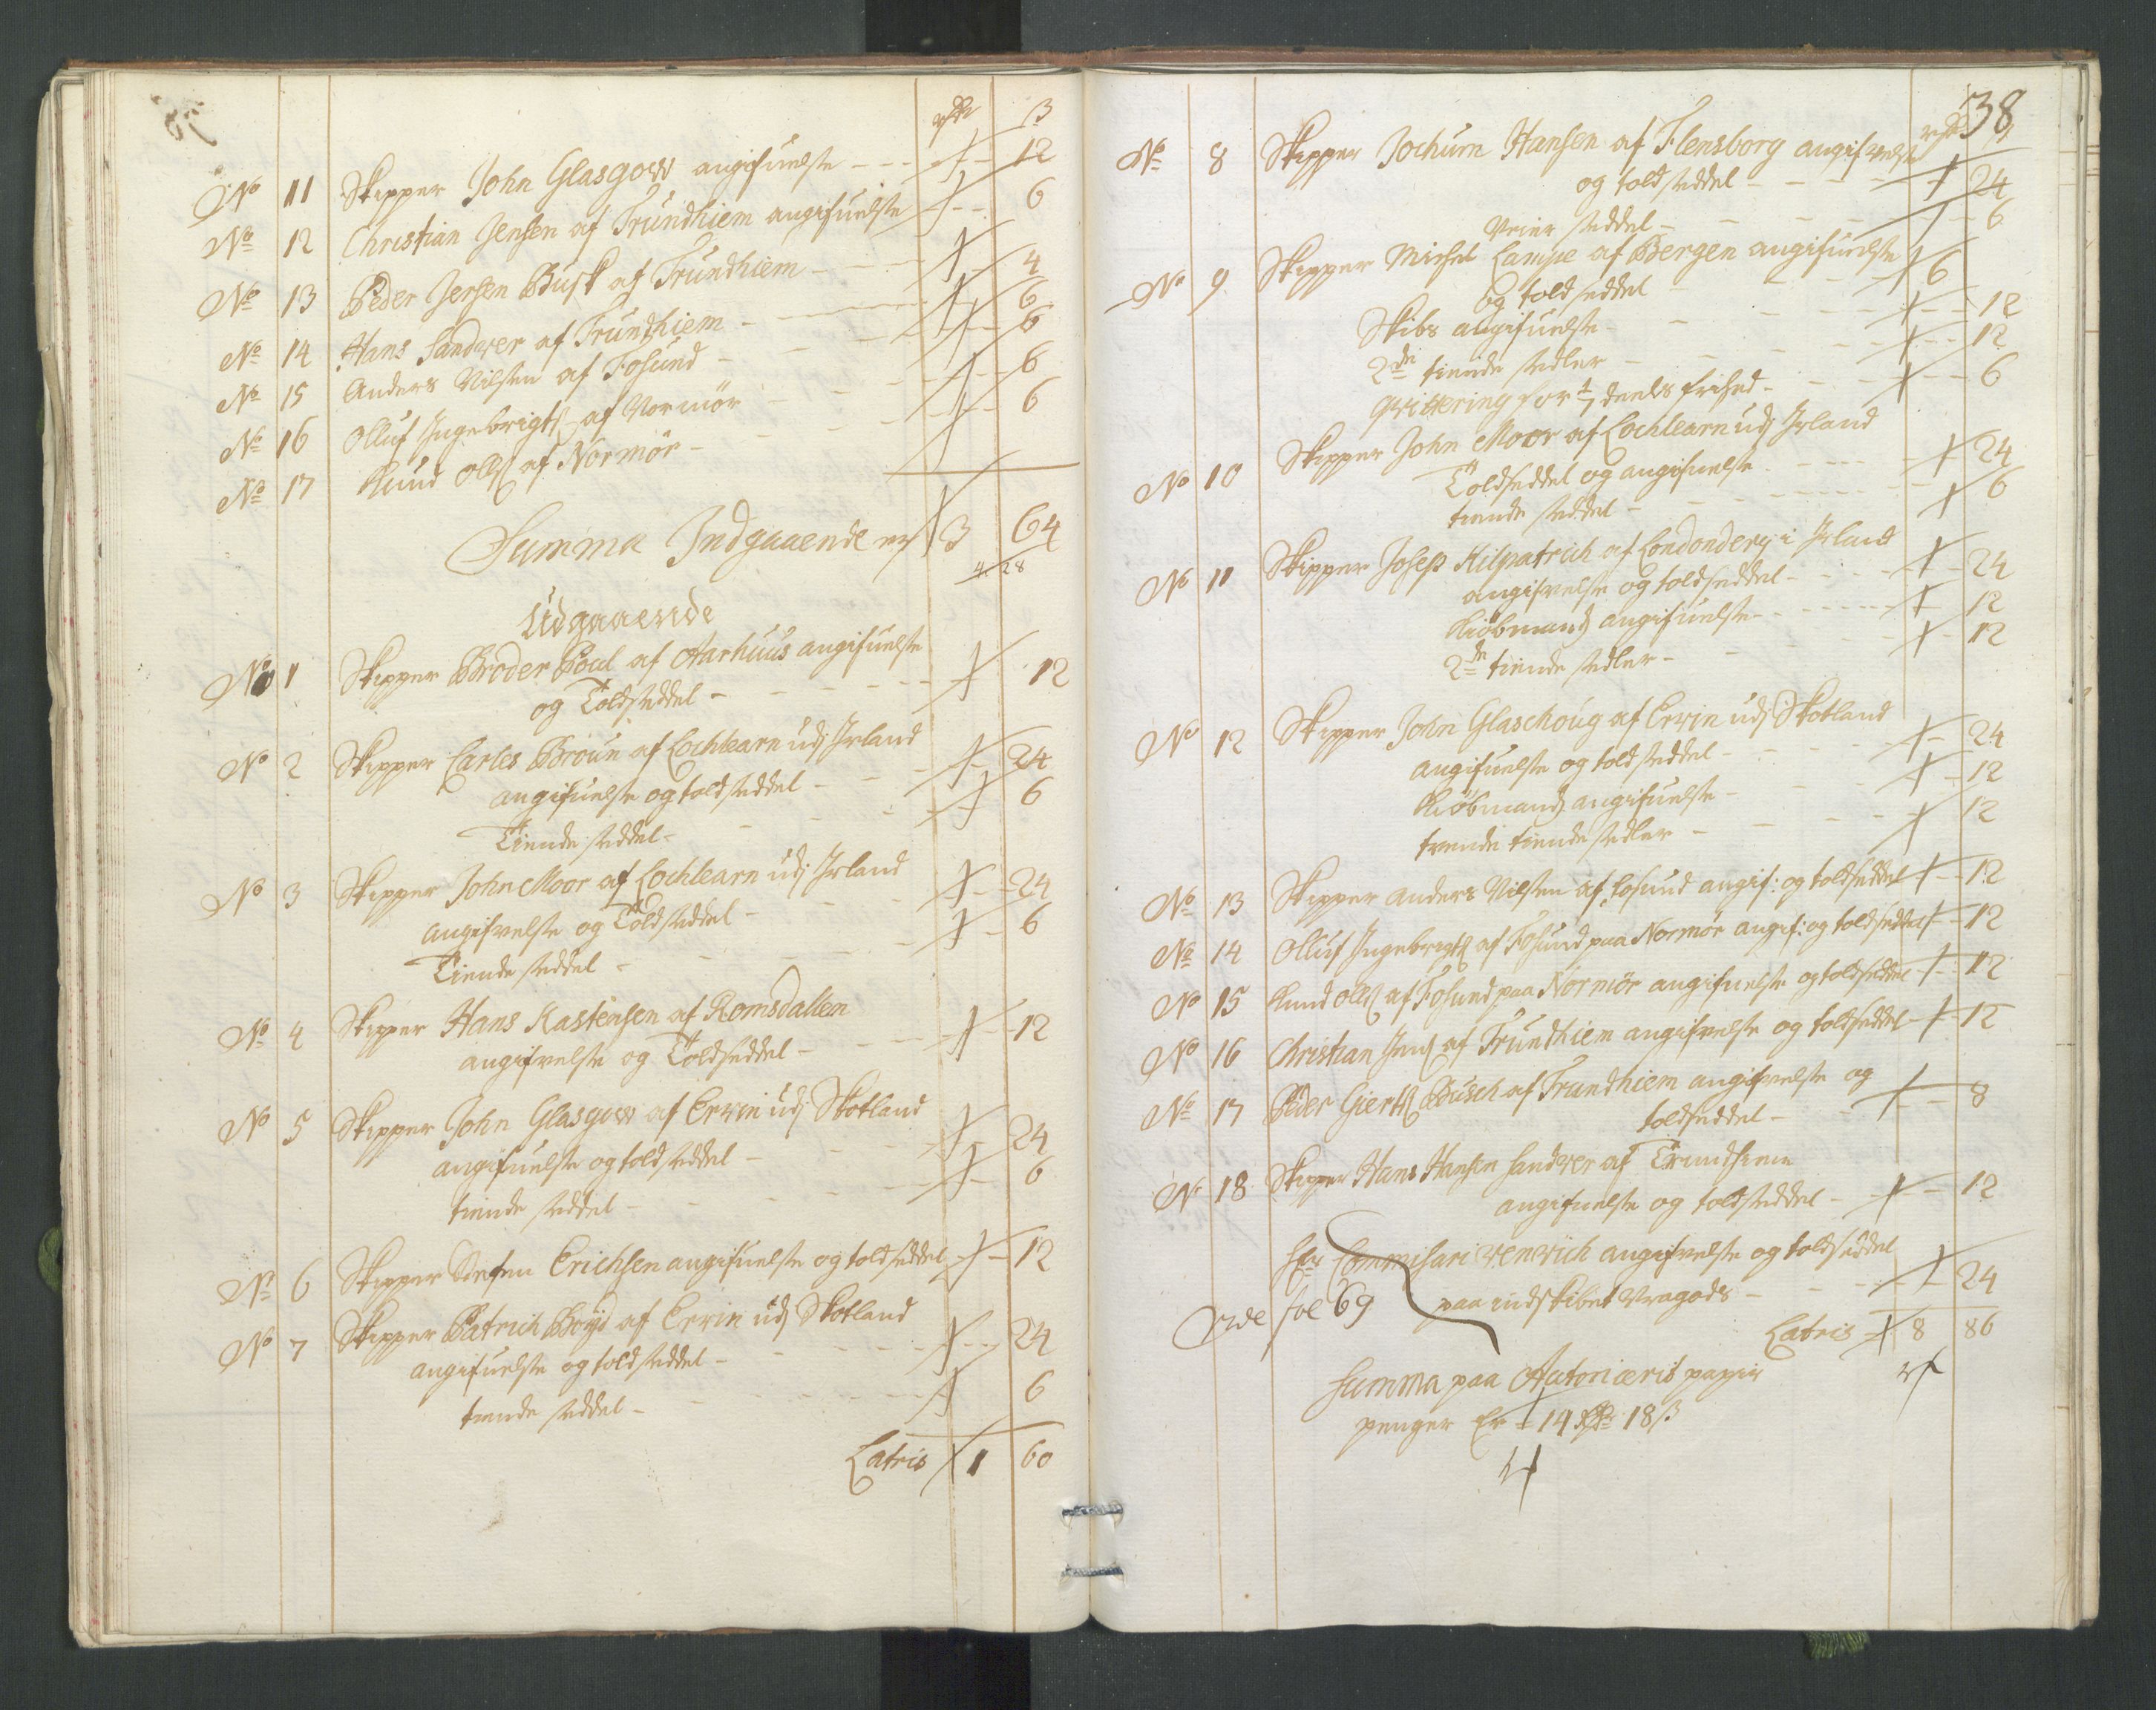 rdr ß
No 11 Skipper John Glasgow angifuelse - - - 12
No 12 Christian Jensen af Trundhiem angifuelse - - 6
No 13 Peder Jersen Busk af Trundhiem - - 4
No 14 Hans Sandwer af Trundhiem - - 6
No 15 Anders Nilsen af Fosund - - 6
No 16 Olluf Ingebrigts af Normör - - 6
No 17 Knud Olls af Normör - - 6
Summa Indgaaende 3 64
4 28
Udgaaende
No 1 Skipper Broder Poul af Aarhuus angifuelse
og Toldseddel - - - 12
No 2 Skipper Carles Broun af Lochlearn udj Irland
angifuelse og toldseddel - - 24
Tiende seddel - - 6
No 3 Skipper John Moor af Lochlearn udj Irland
angifvelse og Toldseddel - - 24
Tiende seddel - - 6
No 4 Skipper Hans Kastensen af Romsdallen
angifvelse og Toldseddel - - 12
No 5 Skipper John Glasgow af Ervin udj Skotland
angifuelse og toldseddel - - 24
tiende seddel - - 6
No 6 Skipper Stefen Erichsen angifuelse og toldseddel - 12
No 7 Skipper Patrich Boyd af Ervin udj Skotland
angifuelse og toldseddel - - 24
tiende seddel - - 6
Latris 1 60
38
No 8 Skipper Jochum Hansen af Flensborg angifvelse
og toldseddel - - 24
seddel - - 6
No 9 Skipper Michel Lampe af Bergen angifuelse
og toldseddel - - 6
Skibs angifuelse - - 12
2de tiende sedler - - 12
qvittering for 1/7 deels frihed - - 6
No 10 Skipper John Moor af Lochlearn udj Irland
Toldseddel og angifuelse - - 24
tiende seddel - - 6
No 11 Skipper Josep Kilpatrich af Londondery i Irland
angifvelse og toldseddel - - 24
Kiöbmands angifuelse - - 12
2de tiende sedler - - 12
No 12 Skipper John Glaschoug af Ervin udj Skotland
angifuelse og toldseddel - - 24
Kiöbmands angifuelse - - 12
trende tiende sedler - - 12
No 13 Skipper Anders Nilsen af Fosund angif: og toldseddel - 12
No 14 Olluf Ingebrigts af Fosund paa Normör angif: og toldseddel - 12
No 15 Knud Olls af Fosund paa Normör angifuelse og toldseddel - 12
No 16 Christian Jens af Trundhiem angifvelse og toldseddel - 12
No 17 Peder Gierts Busch af Trundhiem angifvelse og
toldseddel - - 8
No 18 Skipper Hans Hansen Sandwer af Trundhiem
angifuelse og toldseddel - - 12
Hr Commisari wenwich angifvelse og toldseddel
paa indskibet Vragods - - 24
vide fol 69
Latris 8 86
Summa paa Autoriceris papir
penger Er 14 rdr 18 ß